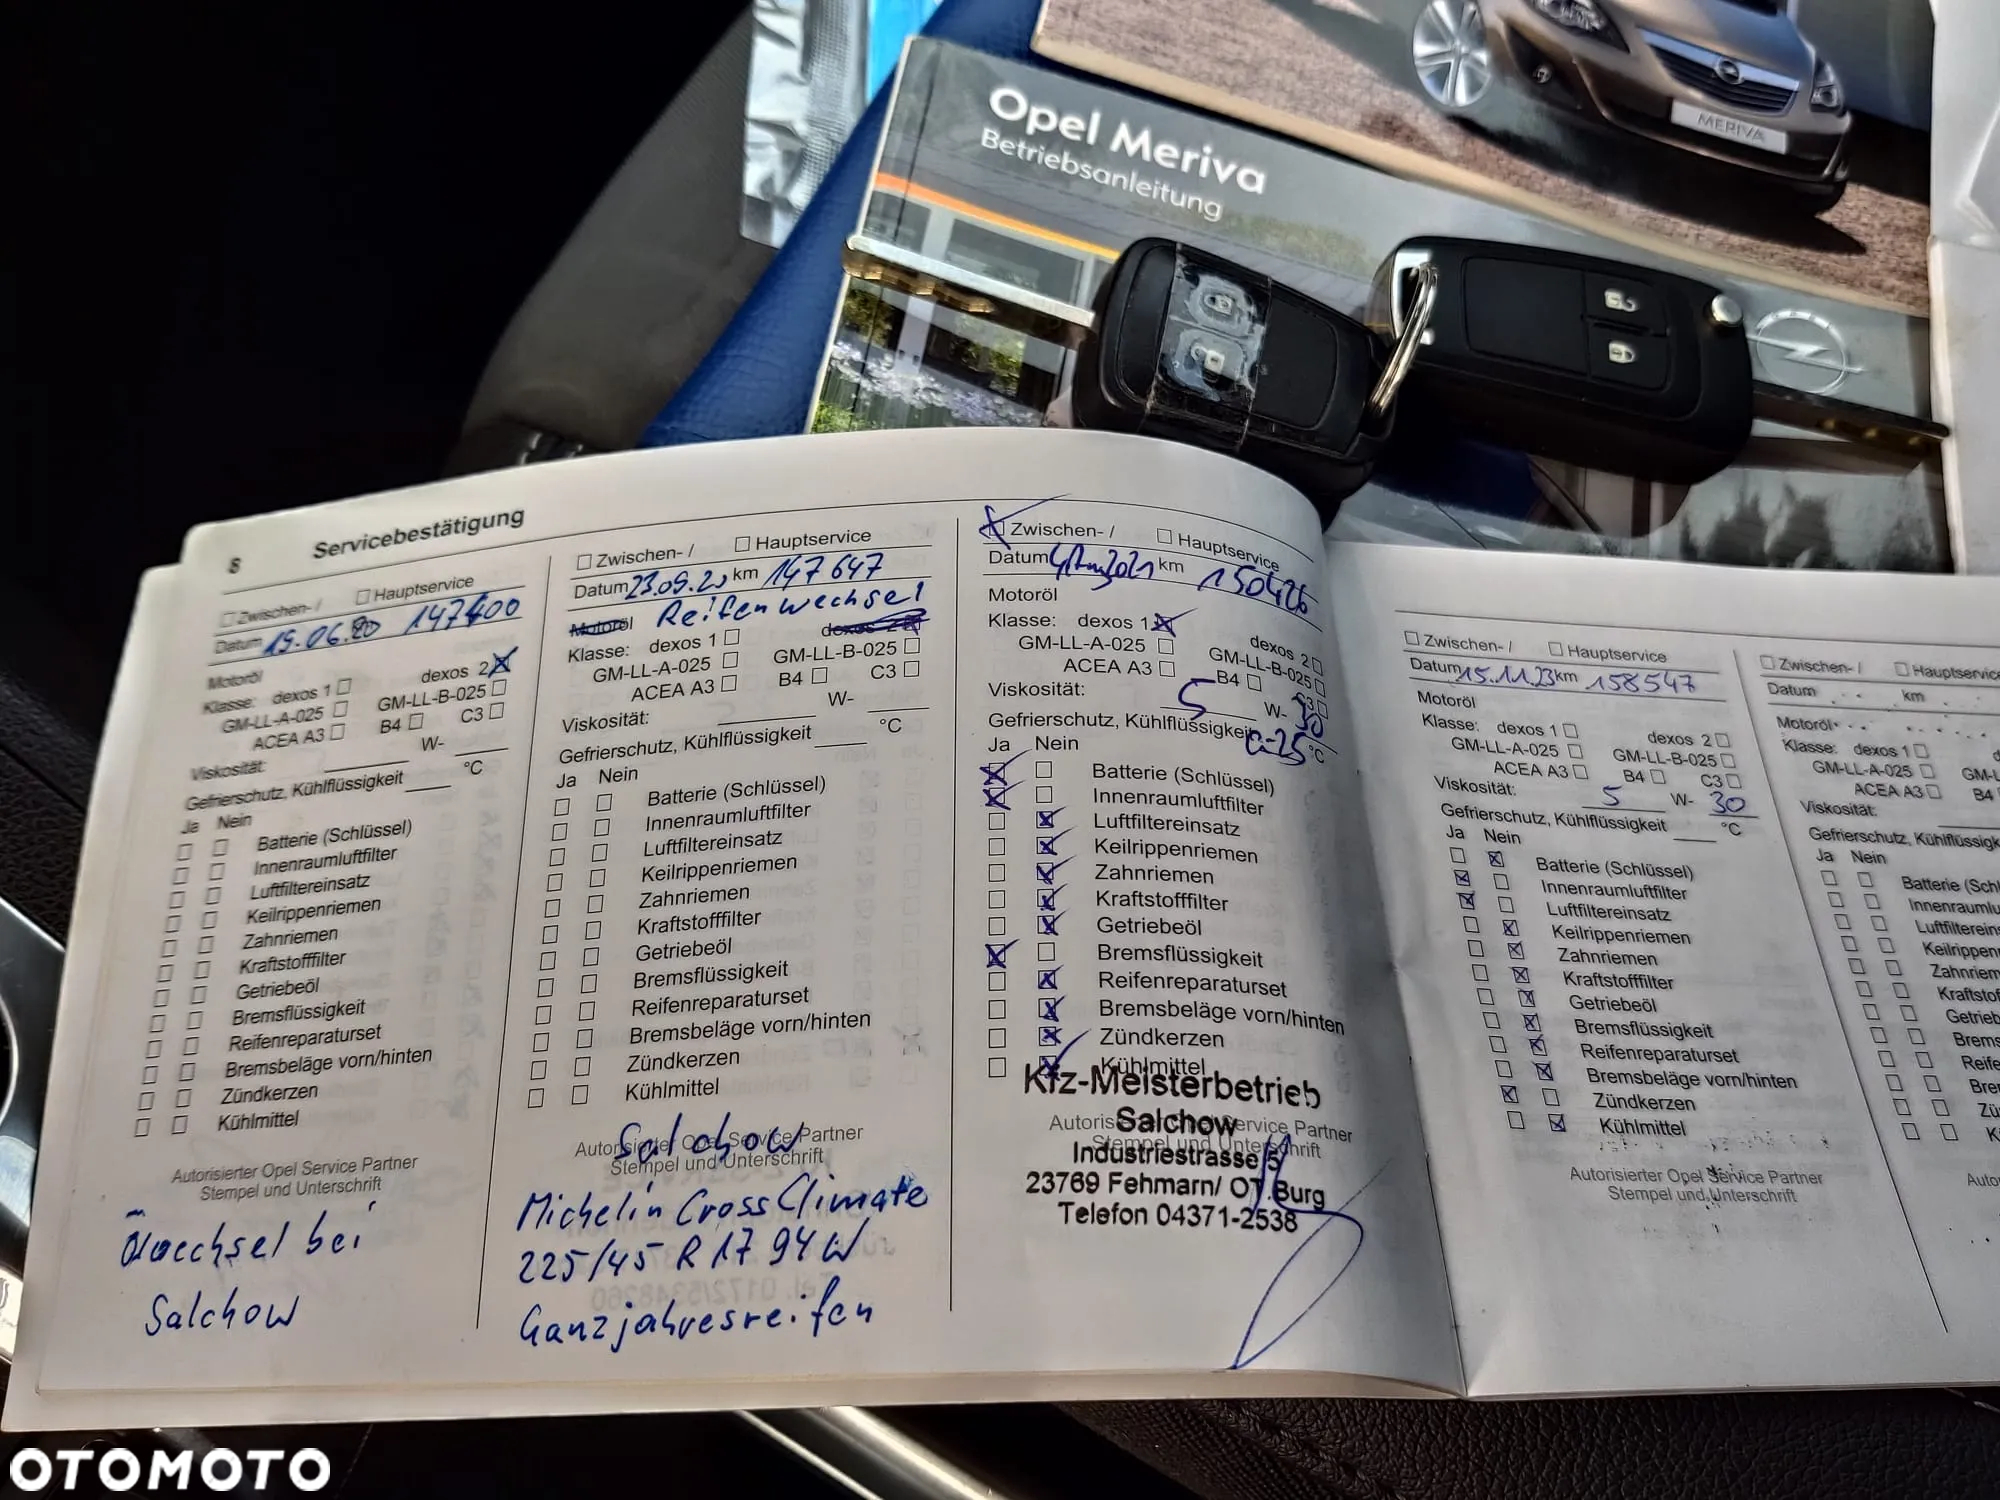 Opel Meriva
Betriebsanleitung
MERIVA
8 Servicebestätigung
Zwischen- / Hauptservice
Datum 19.06.20 147400
Motoröl
Klasse: dexos 1 dexos 2
GM-LL-A-025 GM-LL-B-025
ACEA A3 B4 C3
Viskosität: W-
Gefrierschutz, Kühlflüssigkeit °C
Ja Nein
Batterie (Schlüssel)
Innenraumluftfilter
Luftfiltereinsatz
Keilrippenriemen
Zahnriemen
Kraftstofffilter
Getriebeöl
Bremsflüssigkeit
Reifenreparaturset
Bremsbeläge vorn/hinten
Zündkerzen
Kühlmittel
Autorisierter Opel Service Partner
Stempel und Unterschrift
bei
Salchow
Zwischen- / Hauptservice
Datum 23.09.20 km 147647
Reifenwechsel
Motoröl
Klasse: dexos 1 dexos 2
GM-LL-A-025 GM-LL-B-025
ACEA A3 B4 C3
Viskosität: W-
Gefrierschutz, Kühlflüssigkeit °C
Ja Nein
Batterie (Schlüssel)
Innenraumluftfilter
Luftfiltereinsatz
Keilrippenriemen
Zahnriemen
Kraftstofffilter
Getriebeöl
Bremsflüssigkeit
Reifenreparaturset
Bremsbeläge vorn/hinten
Zündkerzen
Kühlmittel
Salchow
Autorisierter Opel Service Partner
Stempel und Unterschrift
Michelin CrossClimate
225/45 R 17 94 W
Ganzjahresreifen
Zwischen- / Hauptservice
Datum km 150426
Motoröl
Klasse: dexos 1 dexos 2
GM-LL-A-025 GM-LL-B-025
ACEA A3 B4 C3
Viskosität: 5 W- 30
Gefrierschutz, Kühlflüssigkeit -25 °C
Ja Nein
Batterie (Schlüssel)
Innenraumluftfilter
Luftfiltereinsatz
Keilrippenriemen
Zahnriemen
Kraftstofffilter
Getriebeöl
Bremsflüssigkeit
Reifenreparaturset
Bremsbeläge vorn/hinten
Zündkerzen
Kühlmittel
Kfz-Meisterbetrieb
Salchow
Autorisierter Opel Service Partner
Stempel und Unterschrift
Industriestrasse 5
23769 Fehmarn/ OT.Burg
Telefon 04371-2538
Zwischen- / Hauptservice
Datum 15.11.23 km 158547
Motoröl
Klasse: dexos 1 dexos 2
GM-LL-A-025 GM-LL-B-025
ACEA A3 B4 C3
Viskosität: 5 W- 30
Gefrierschutz, Kühlflüssigkeit °C
Ja Nein
Batterie (Schlüssel)
Innenraumluftfilter
Luftfiltereinsatz
Keilrippenriemen
Zahnriemen
Kraftstofffilter
Getriebeöl
Bremsflüssigkeit
Reifenreparaturset
Bremsbeläge vorn/hinten
Zündkerzen
Kühlmittel
Autorisierter Opel Service Partner
Stempel und Unterschrift
Zwischen- / Hauptservice
Datum km
Motoröl
Klasse: dexos 1
GM-LL-A-025
ACEA A3 B4
Viskosität:
Gefrierschutz,
Ja Nein
OTOMOTO